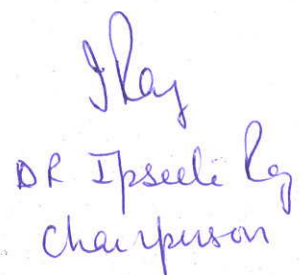 I Ray
DR Ipseeta Ray
Chairperson